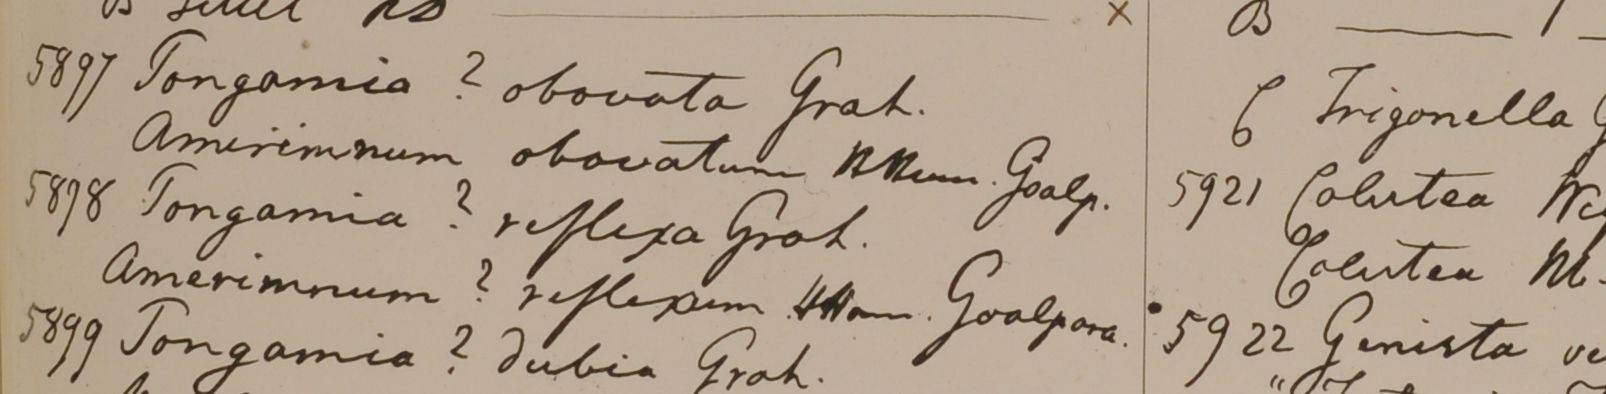 5897 Pongamia ? obovata Grah.
Amerimnum obovatum HHam. Goalp.
5898 Pongamia ? reflexa Grah.
Amerimnum ? reflexum HHam. Goalpara.
5899 Pongamia ? dubia Grah.
B
6 Trigonella G
5921 Colutea
Colutea
5922 Genista ve